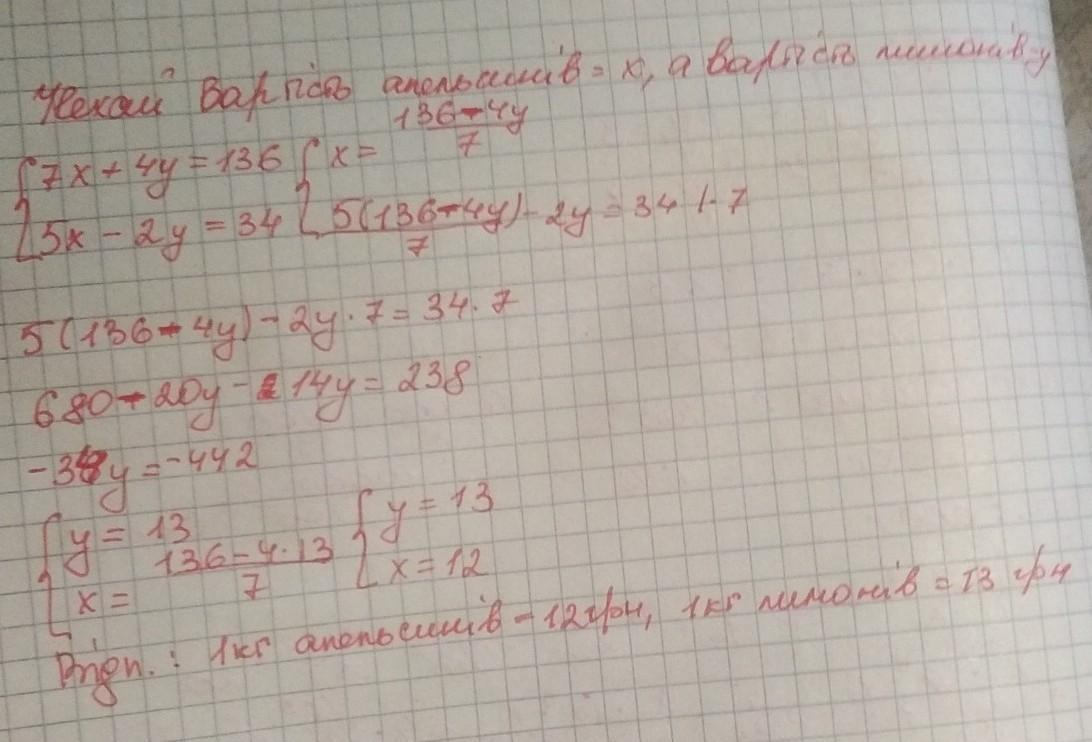 Нехай вартість апельсинів = x, а вартість лимонів - y
{7x + 4y = 136 {x = (136 - 4y)/7
{5x - 2y = 34 {5(136 - 4y)/7 - 2y = 34 | · 7
5(136 - 4y) - 2y · 7 = 34 · 7
680 - 20y - 14y = 238
-34y = -442
{y = 13 {y = 13
{x = (136 - 4 · 13)/7 {x = 12
Відп.: 1кг апельсинів - 12 грн, 1кг лимонів = 13 грн